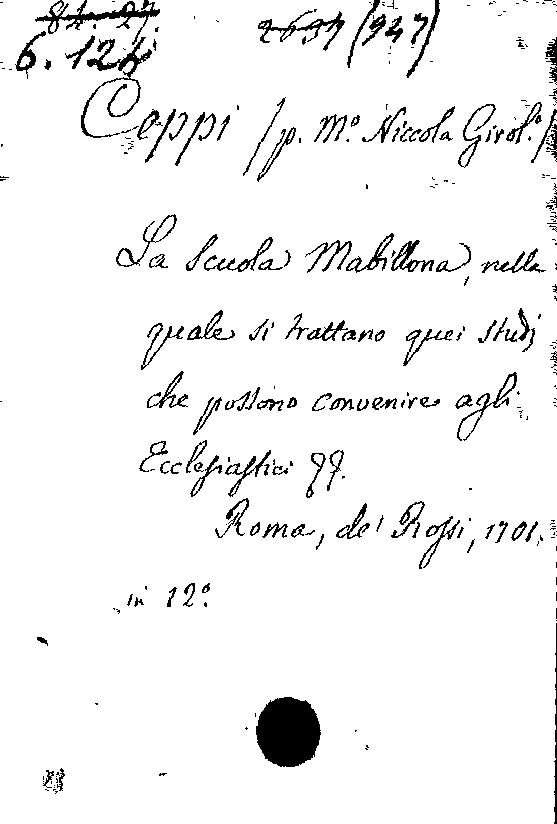 84. 27.
2637 (947)
6. 124
Ceppi /p. M.º Niccola Girol.º/
La Scuola Mabillona, nella
quale si trattano quei studj
che possono convenire agli
Ecclesiastici
Roma, de' Rossi, 1701.
in 12º.